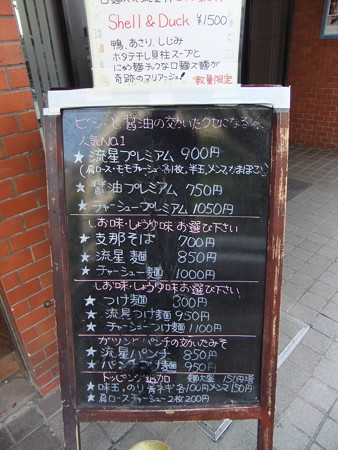 Shell & Duck ¥1500
鴨、あさり、しじみ
ホタテ干し貝柱スープと
奇跡のマリアージュ!
数量限定
ピシッと醤油の効いたクセになる
人気NO.1
★流星プレミアム 900円
★醤油プレミアム 750円
★チャーシュープレミアム 1050円
しお味・しょうゆ味 お選び下さい
★支那そば 700円
★流星麺 850円
★チャーシュー麺 1000円
しお味・しょうゆ味 お選び下さい
★つけ麺 800円
★流星つけ麺 950円
★チャーシューつけ麺 1100円
ガツンとパンチの効いたみそ
★流星パンチ 850円
★パンチつけ麺 950円
トッピング追加 麺大盛 150円増
★味玉、のり、青ネギ 各100円 メンマ 150円
★肩ロースチャーシュー2枚 200円